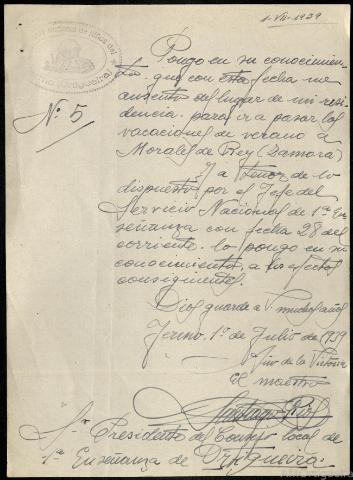 1-VII-1939
Nacional de Niños del
(Ortigueira)
Nº 5
Pongo en su conocimien-
to que con esta fecha me
ausento del lugar de mi resi-
dencia para ir a pasar las
vacaciones de verano a
Morales de Rey (Zamora)
Y a tenor de lo
dispuesto por el Jefe del
Servicio Nacional de 1ª En-
señanza con fecha 28 del
corriente lo pongo en su
conocimiento, a los efectos
consiguientes.
Dios guarde a V. muchos años
1º de Julio de 1939
Año de la Victoria
El maestro
Santiago
Sr. Presidente del Consejo local de
1ª Enseñanza de Ortigueira.